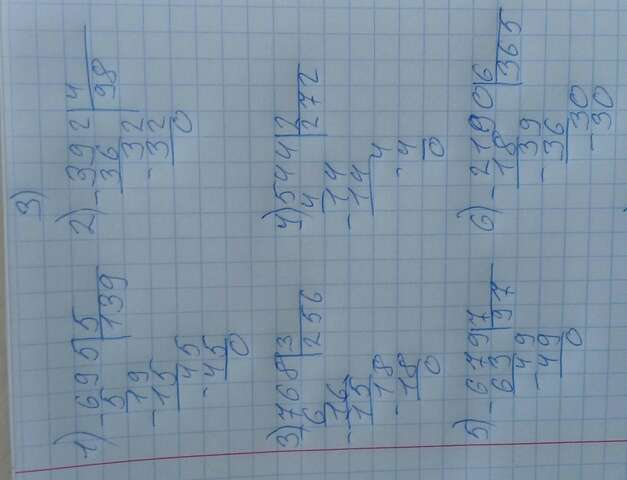 3)
1) -695 | 5
5 | 139
19
-15
45
-45
0
2) -392 | 4
36 | 98
32
-32
0
3) 768 | 3
6 | 256
16
-15
18
-18
0
4) 544 | 2
4 | 272
14
-14
4
-4
0
5) -679 | 7
63 | 97
49
-49
0
6) -2190 | 6
18 | 365
39
-36
30
-30